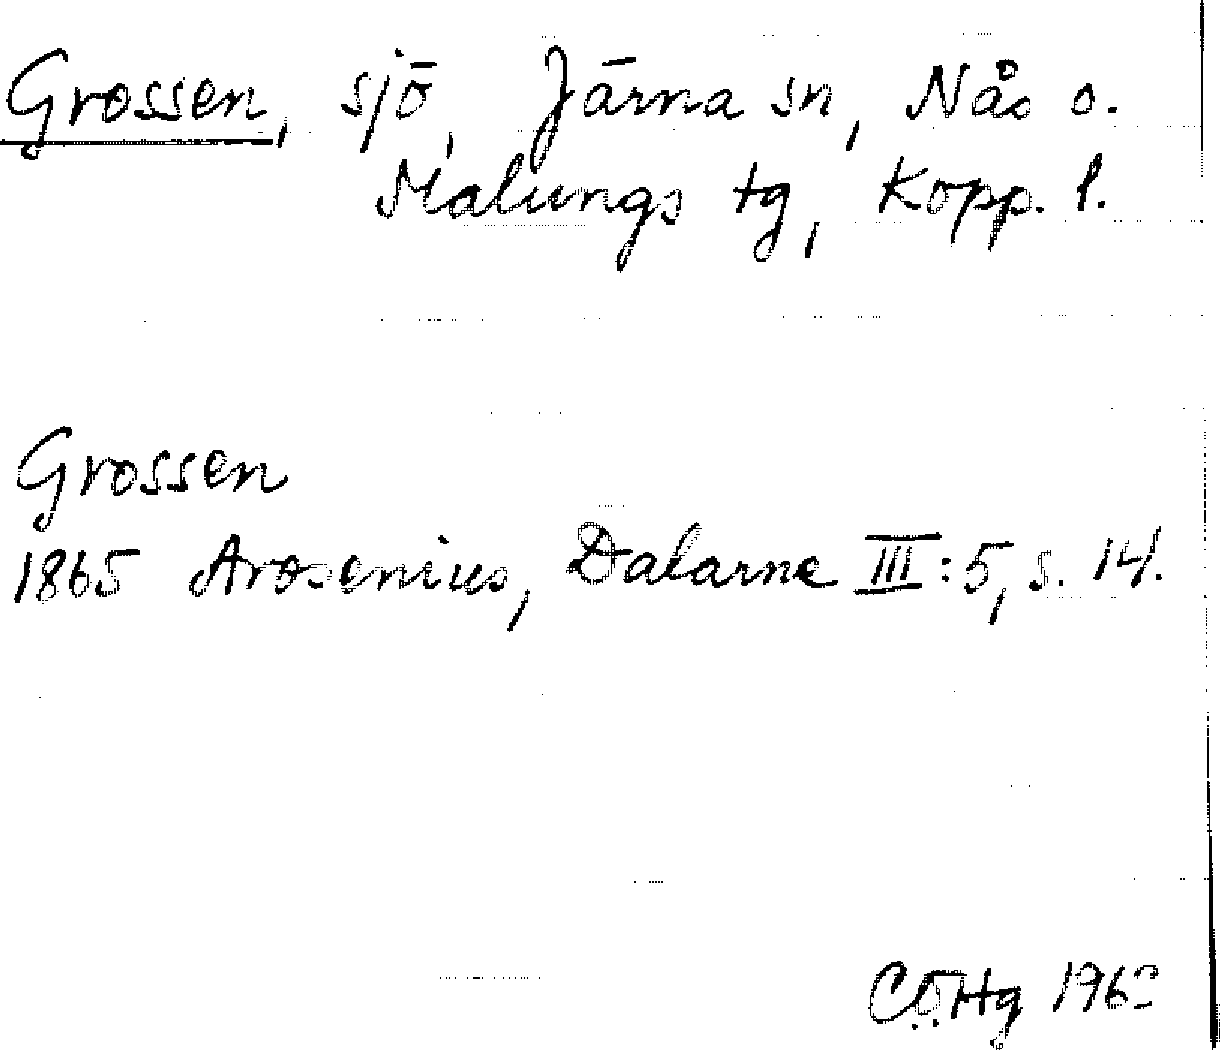 Grossen, sjö, Järna sn, Nås o.
Malungs tg, Kopp. l.
Grossen
1865 Arosenius, Dalarne III:5, s. 14.